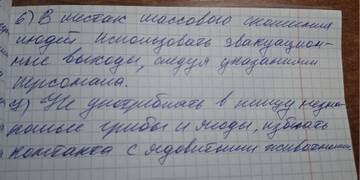 6) В местах массового скопления
людей использовать эвакуацион-
ные выходы, следуя указаниям
персонала.
7) Не употреблять в пищу незна-
комые грибы и ягоды, избегать
контакта с ядовитыми животными